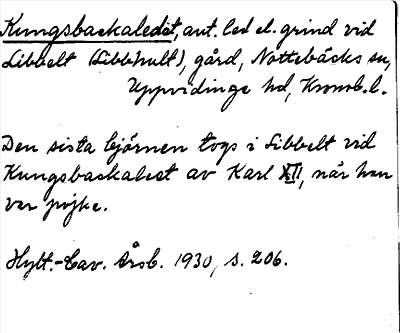 Kungsbackaledet, ant. led el. grind vid
Libbelt (Libbhult), gård, Nottebäcks sn,
Uppvidinge hd, Kronob. l.
Den sista björnen togs i Libbelt vid
Kungsbackalect av Karl XII, när han
var pojke.
Hylt.-Cav. Årsb. 1930, s. 206.